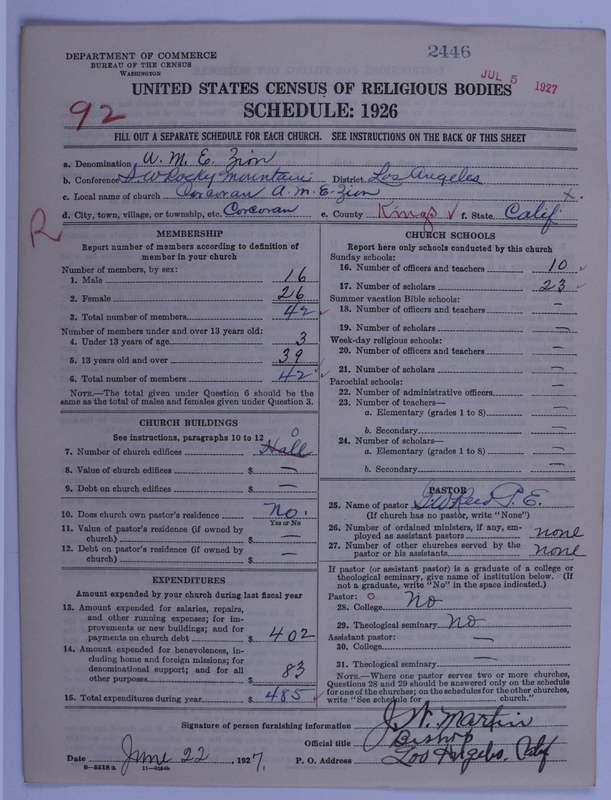 2446
JUL 5 1927
DEPARTMENT OF COMMERCE
BUREAU OF THE CENSUS
WASHINGTON
UNITED STATES CENSUS OF RELIGIOUS BODIES
SCHEDULE: 1926
92
FILL OUT A SEPARATE SCHEDULE FOR EACH CHURCH. SEE INSTRUCTIONS ON THE BACK OF THIS SHEET
a. Denomination A. M. E. Zion
b. Conference S. W Rocky Mountain District Los Angeles
c. Local name of church Corcoran A. M. E. Zion x
d. City, town, village, or township, etc. Corcoran e. County Kings ✓ f. State Calif
R
MEMBERSHIP
Report number of members according to definition of
member in your church
Number of members, by sex:
1. Male 16
2. Female 26
3. Total number of members 42 ✓
Number of members under and over 13 years old:
4. Under 13 years of age 3
5. 13 years old and over 39
6. Total number of members 42 ✓
NOTE.—The total given under Question 6 should be the
same as the total of males and females given under Question 3.
CHURCH BUILDINGS
See instructions, paragraphs 10 to 12 0
7. Number of church edifices Hall
8. Value of church edifices $ —
9. Debt on church edifices $ —
10. Does church own pastor's residence? No.
Yes or No
11. Value of pastor's residence (if owned by
church) $ —
12. Debt on pastor's residence (if owned by
church) $ —
EXPENDITURES
Amount expended by your church during last fiscal year
13. Amount expended for salaries, repairs,
and other running expenses; for im-
provements or new buildings; and for
payments on church debt $ 402
14. Amount expended for benevolences, in-
cluding home and foreign missions; for
denominational support; and for all
other purposes $ 83
15. Total expenditures during year $ 485 ✓
CHURCH SCHOOLS
Report here only schools conducted by this church
Sunday schools:
16. Number of officers and teachers 10 ✓
17. Number of scholars 23 ✓
Summer vacation Bible schools:
18. Number of officers and teachers —
19. Number of scholars —
Week-day religious schools:
20. Number of officers and teachers —
21. Number of scholars —
Parochial schools:
22. Number of administrative officers —
23. Number of teachers—
a. Elementary (grades 1 to 8) —
b. Secondary —
24. Number of scholars—
a. Elementary (grades 1 to 8) —
b. Secondary —
PASTOR
25. Name of pastor P. E.
(If church has no pastor, write "None")
26. Number of ordained ministers, if any, em-
ployed as assistant pastors none
27. Number of other churches served by the
pastor or his assistants none
If pastor (or assistant pastor) is a graduate of a college or
theological seminary, give name of institution below. (If
not a graduate, write "No" in the space indicated.)
Pastor: 0
28. College No
29. Theological seminary No
Assistant pastor:
30. College —
31. Theological seminary —
NOTE.—Where one pastor serves two or more churches,
Questions 28 and 29 should be answered only on the schedule
for one of the churches; on the schedules for the other churches,
write "See schedule for church."
Signature of person furnishing information J. W. Martin
Official title Bishop
Date June 22, 1927. P. O. Address Los Angeles, Calif
8—5518a